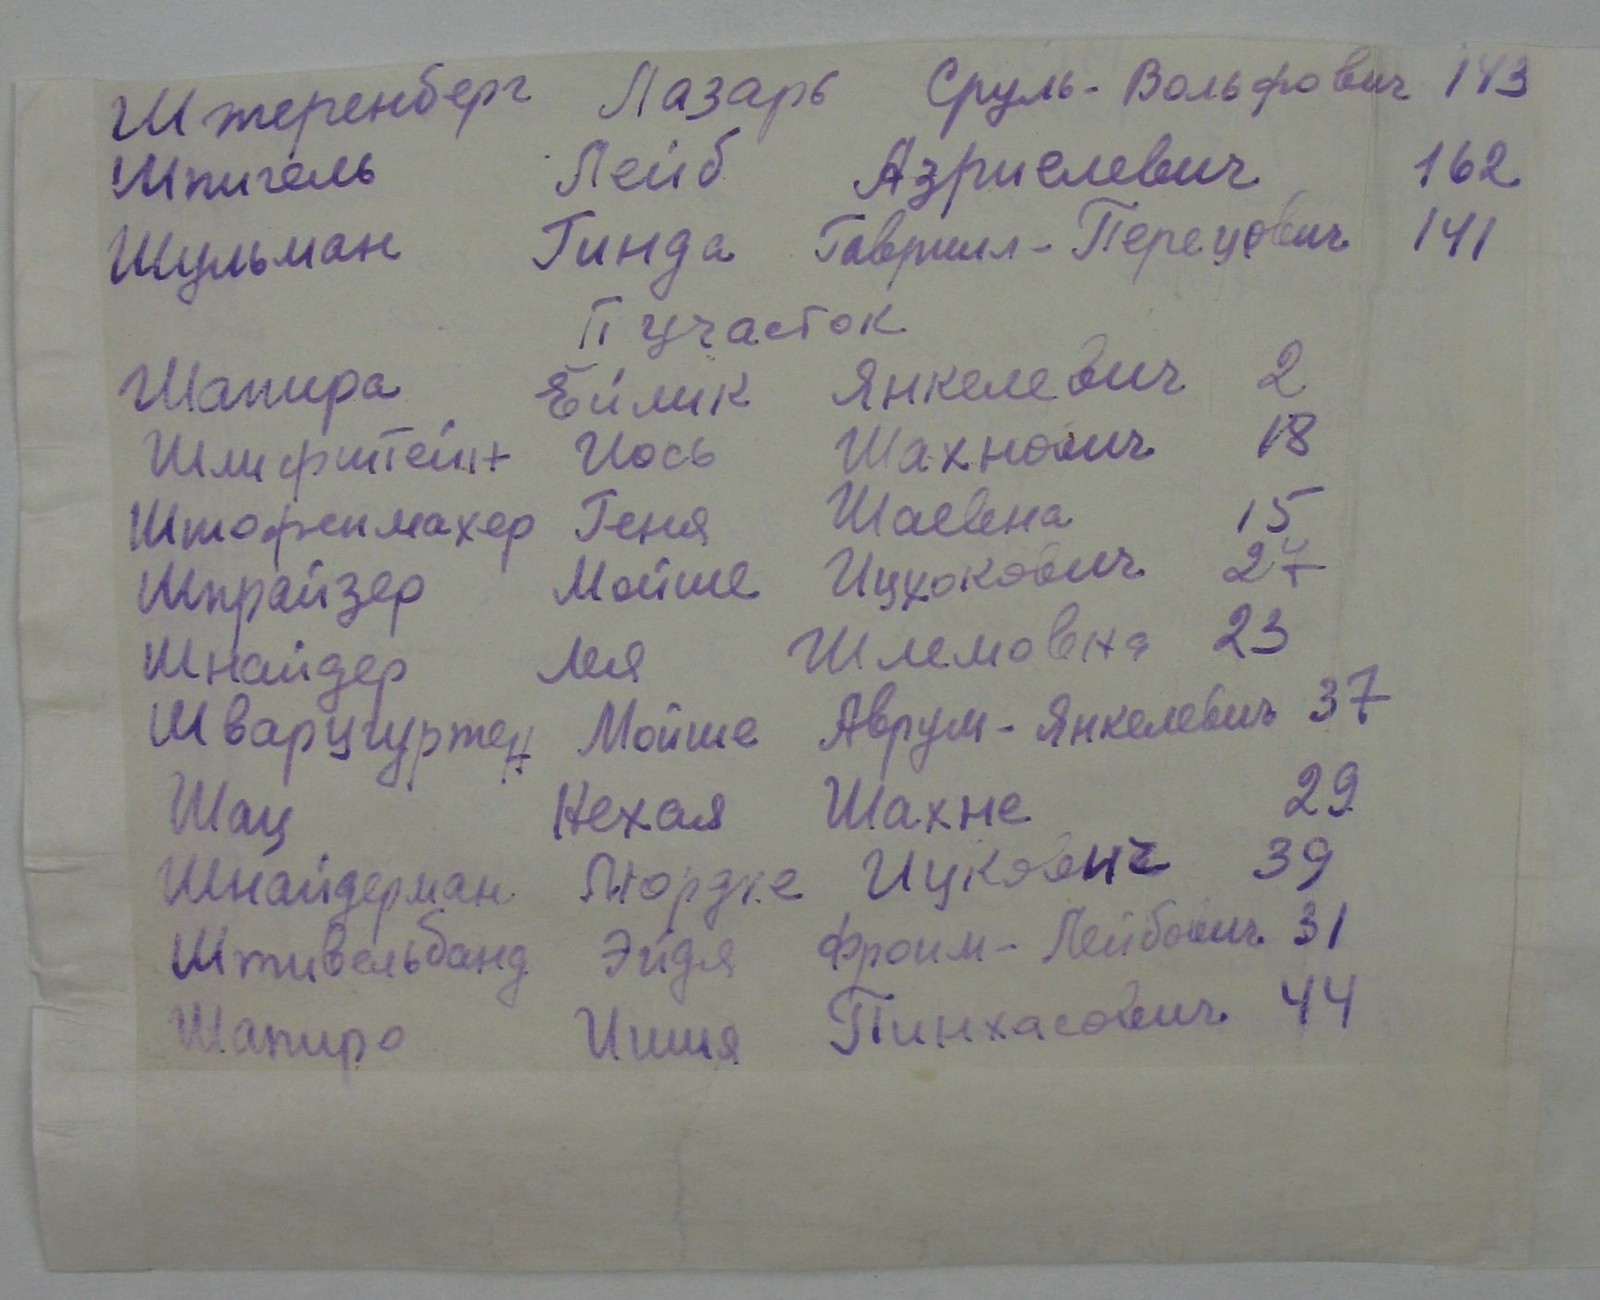 Штеренберг Лазарь Сруль-Вольфович 143
Шпигель Лейб Азриелевич 162
Шульман Гинда Гавриил-Перецович 141
II участок
Шапира Ейлик Янкелевич 2
Шлифштейн Иось Шахнович 18
Штофенмахер Геня Шаевна 15
Шпрайзер Мойше Ицхокович 27
Шнайдер Лея Шлемовна 23
Шварцгуртен Мойше Аврум-Янкелевич 37
Шац Нехая Шахне 29
Шнайдерман Мордке Ицкович 39
Штивельбанд Эйдя Фроим-Лейбович 31
Шапиро Ишия Пинхасович 44